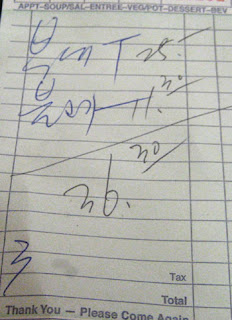 APPT-SOUP/SAL-ENTREE-VEG/POT-DESSERT-BEV
불대 T 25.-
11.30
36.30
3
Tax
Total
Thank You — Please Come Again